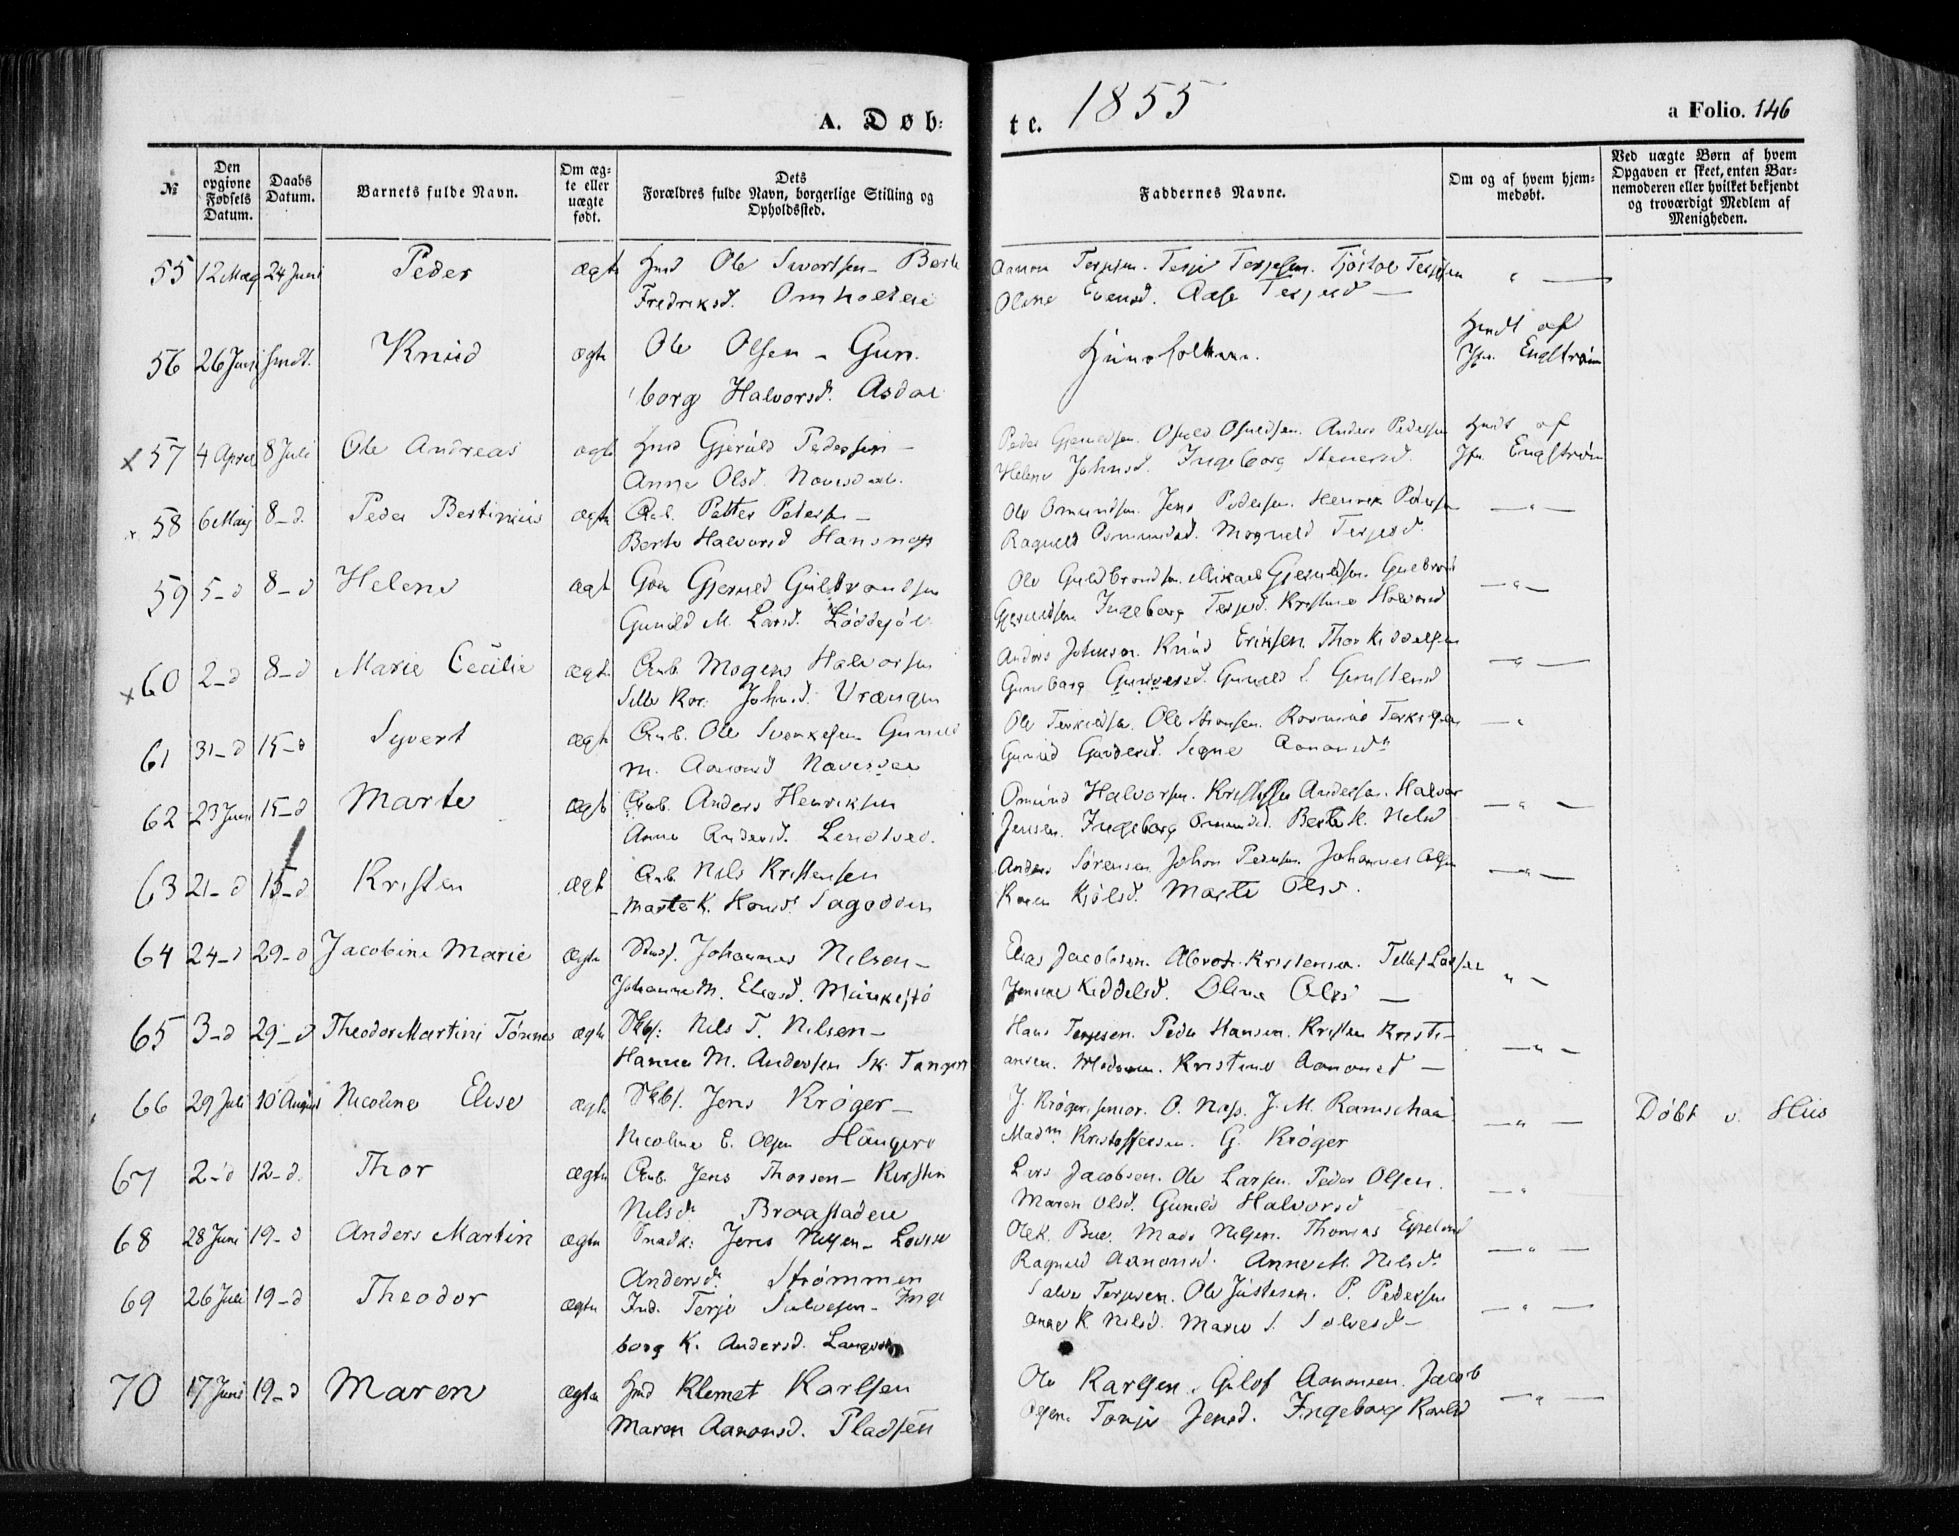 A. Døb:
te. 1855
a Folio. 146
№
Den opgivne Fødsels Datum.
Daabs Datum.
Barnets fulde Navn.
Om ægte eller uægte født.
Dets Forældres fulde Navn, borgerlige Stilling og Opholdssted.
Faddernes Navne.
Om og af hvem hjemmedøbt.
Ved uægte Børn af hvem Opgaven er skeet, enten Barnemoderen eller hvilket bekjendt og troværdigt Medlem af Menigheden.
55 12 May 24 Juni Peder ægte Hmd Ole Sivertsen - Berte
Fredriksd. Omholtei
Aanon Terjesen. Terje Terjesen. Tjöstol Terjesen
Oline Evensd. Aase Terjesd —
56 26 Juni hmdt. Knud ægte Ole Olsen - Gun-
borg Halvorsd. Asdal
Hmdt af
Jfr. Engstrøm
57 4 April 8 Juli Ole Andreas ægte Hmd Gjeruld Pedersen -
Anne Olsd.
Peder Gjeruldsen. Osuld Osuldsen. Anders Pedersen
Helene Johnsd. Ingeborg
Hmdt af
Jfr. Engstrøm
58 6 May 8 - d. Peder Bertinius ægte Arb. Petter Petersen -
Berte Halvorsd
Ole Omundsen. Jens Pedersen. Henrik Pedersen
Ragnild Osmundsd. Terjesd
59 5 - d 8 - d Helene ægte Gjeruld Gulbrandsen
Gunild M. Larsd. Löddesjöl
Ole Guldbrandsen. Mikael Gjeruldsen. Gulbrand
Gjeruldsen Ingeborg Terjesd. Kristine Halvorsd
60 2 - d 8 - d Marie Cecilie ægte Arb. Mogens Halvorsen
Kar. Johnsd. Vrængen
Anders Johnsen. Knud Eriksen. Thor Kiddelsen
Gunborg Gunild
61 31 - d 15 - d Syvert ægte Arb. Ole Svenkesen Gunild
M. Aanonsd
Ole Terkildsen. Ole
Gunild Signe Aanonsd
62 23 Juni 15 - d Marte ægte Arb. Anders Henriksen
Anne Andersd. Lendtved.
Omund Halvorsen. Kristoffer Andersen. Halvor
Jensen. Ingeborg Omundsd. Berte K. Nilsd
63 21 - d 15 - d Kristen ægte Arb. Nils Kristensen
Marte K. Sagodden
Anders Sörensen John Pedersen. Johannes Olsen
Karen Kjölsd. Marte Olsd.
64 24 - d 29 - d Jacobine Marie ægte Johannes Nilsen -
Johanne M. Eliasd. Munkesjö
Elias Jacobsen. Kristensen. Tellef Larsen
Jensine Kiddelsd. Oline Olsd —
65 3 - d 29 - d Theodor Martini Tönnes ægte Skbf: Nils T. Nilsen -
Hanne M. Andersen Sk. Tangen
Hans Terjesen. Peder Hansen. Kristen Kristi-
ansen. Kristine Aanonsd —
66 29 Juli 10 August Nicoline Elise ægte Skbf. Jens Kröger -
Nicoline E. Olsen
J. Kröger senior. O. Næss. J. M. Ramschau
Madm Kristoffersen. G. Kröger
Döbt v. Hiis
67 2 - d 12 - d. Thor ægte Arb. Jens Thorsen - Kirsten
Nilsd. Braastaden
Lars Jacobsen. Ole Larsen. Peder Olsen.
Maren Olsd. Gunild Halvorsd
68 28 Juni 19 - d Anders Martin ægte Jens Nilsen - Lovise
Andersd. Strömmen
Ole K. Bue. Mads Nilsen. Thomas
Ragnild Aanonsd. Anne M. Nilsd.
69 26 Juli 19 - d Theodor ægte Ind. Terje Salvesen - Inge
borg K. Andersd.
Salve Terjesen. Ole Justesen. P. Pedersen
Anne K. Nilsd. Marie S. Salvesd -
70 17 Juni 19 - d Maren ægte Hmd Klemet Karlsen
Maren Aanonsd. Pladsen
Ole Karlsen. Aanonsen. Jacob
Olsen. Tonje Jensd. Ingeborg Karlsd